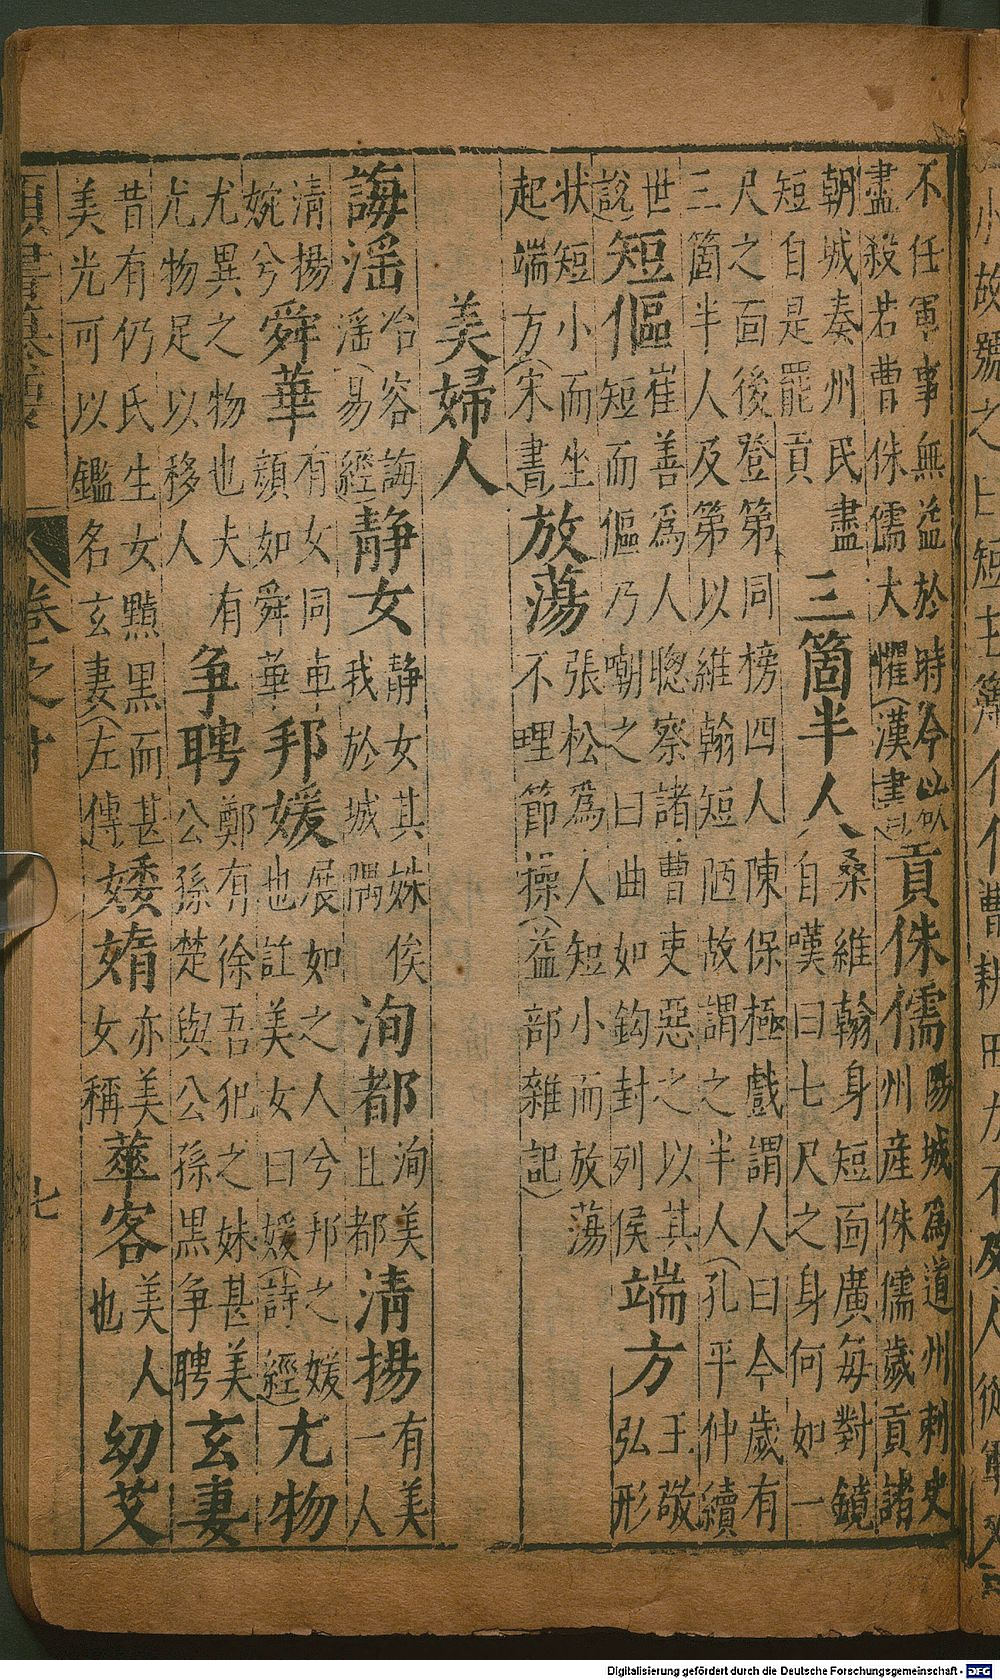 不任軍事無益於時今以
盡殺若曹侏儒大懼(漢書)
貢侏儒
陽城爲道州刺史
州產侏儒歲貢諸
朝城奏州民盡
短自是罷貢
三箇半人
桑維翰身短面廣每對鏡
自嘆曰七尺之身何如一
尺之面後登第同榜四人陳保極戲謂人曰今歲有
三箇半人及第以維翰短陋故謂之半人(孔平仲續
世
說)
短傴
崔善爲人聰察諸曹吏惡之以其
短而傴乃嘲之曰曲如鈎封列侯
端方
王敬
弘形
狀短小而坐
起端方(宋書)
放蕩
張松爲人短小而放蕩
不理節操(益部雜記)
美婦人
誨淫
冶容誨
淫(易經)
靜女
靜女其姝俟
我於城隅
洵都
洵美
且都
清揚
有美
一人
清揚
婉兮
舜華
有女同車
顏如舜華
邦媛
展如之人兮邦之媛
也註美女曰媛(詩經)
尤物
尤異之物也夫有
尤物足以移人
爭聘
鄭有徐吾犯之妹甚美
公孫楚與公孫黑爭聘
玄妻
昔有仍氏生女黰黑而甚
美光可以鑑名玄妻(左傳)
婑媠
亦美
女稱
蕐客
美人
也
幼艾
卷之廿
七
Digitalisierung gefördert durch die Deutsche Forschungsgemeinschaft - DFG